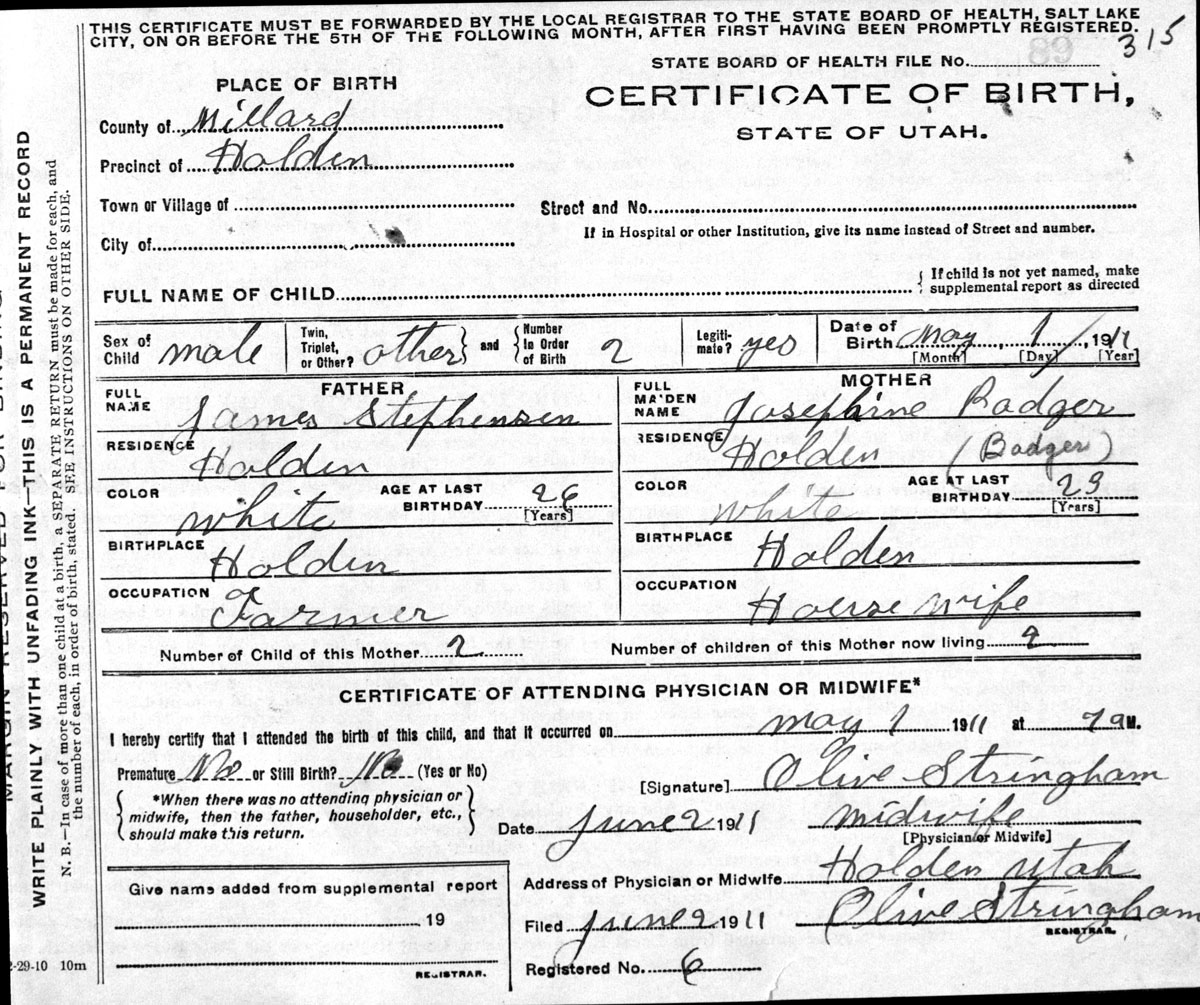 THIS CERTIFICATE MUST BE FORWARDED BY THE LOCAL REGISTRAR TO THE STATE BOARD OF HEALTH, SALT LAKE
CITY, ON OR BEFORE THE 5TH OF THE FOLLOWING MONTH, AFTER FIRST HAVING BEEN PROMPTLY REGISTERED.
315
STATE BOARD OF HEALTH FILE No.
89
PLACE OF BIRTH
CERTIFICATE OF BIRTH,
STATE OF UTAH.
County of Millard
Precinct of Holden
Town or Village of
Street and No.
City of
If in Hospital or other Institution, give its name instead of Street and number.
FULL NAME OF CHILD
{ If child is not yet named, make
supplemental report as directed
Sex of Child male
Twin, Triplet, or Other? other } and { Number in Order of Birth 2
Legitimate? yes
Date of Birth May 1, 1911
[Month] [Day] [Year]
FATHER
FULL NAME James Stephensen
RESIDENCE Holden
COLOR white AGE AT LAST BIRTHDAY 26 [Years]
BIRTHPLACE Holden
OCCUPATION Farmer
MOTHER
FULL MAIDEN NAME Josephine Badger
RESIDENCE Holden (Badger)
COLOR white AGE AT LAST BIRTHDAY 23 [Years]
BIRTHPLACE Holden
OCCUPATION House wife
Number of Child of this Mother 2 Number of children of this Mother now living 2
CERTIFICATE OF ATTENDING PHYSICIAN OR MIDWIFE*
I hereby certify that I attended the birth of this child, and that it occurred on may 1 1911 at 7 a M.
Premature No or Still Birth? No (Yes or No)
[Signature] Olive Stringham
{ *When there was no attending physician or
midwife, then the father, householder, etc.,
should make this return. }
Date June 2 1911 midwife
[Physician or Midwife]
Address of Physician or Midwife Holden Utah
Give name added from supplemental report
19
Filed June 2 1911 Olive Stringham
REGISTRAR.
Registered No. 6
REGISTRAR.
2-29-10 10m
MARGIN RESERVED FOR BINDING
WRITE PLAINLY WITH UNFADING INK—THIS IS A PERMANENT RECORD
N. B.—In case of more than one child at a birth, a SEPARATE RETURN must be made for each, and
the number of each, in order of birth, stated. SEE INSTRUCTIONS ON OTHER SIDE.